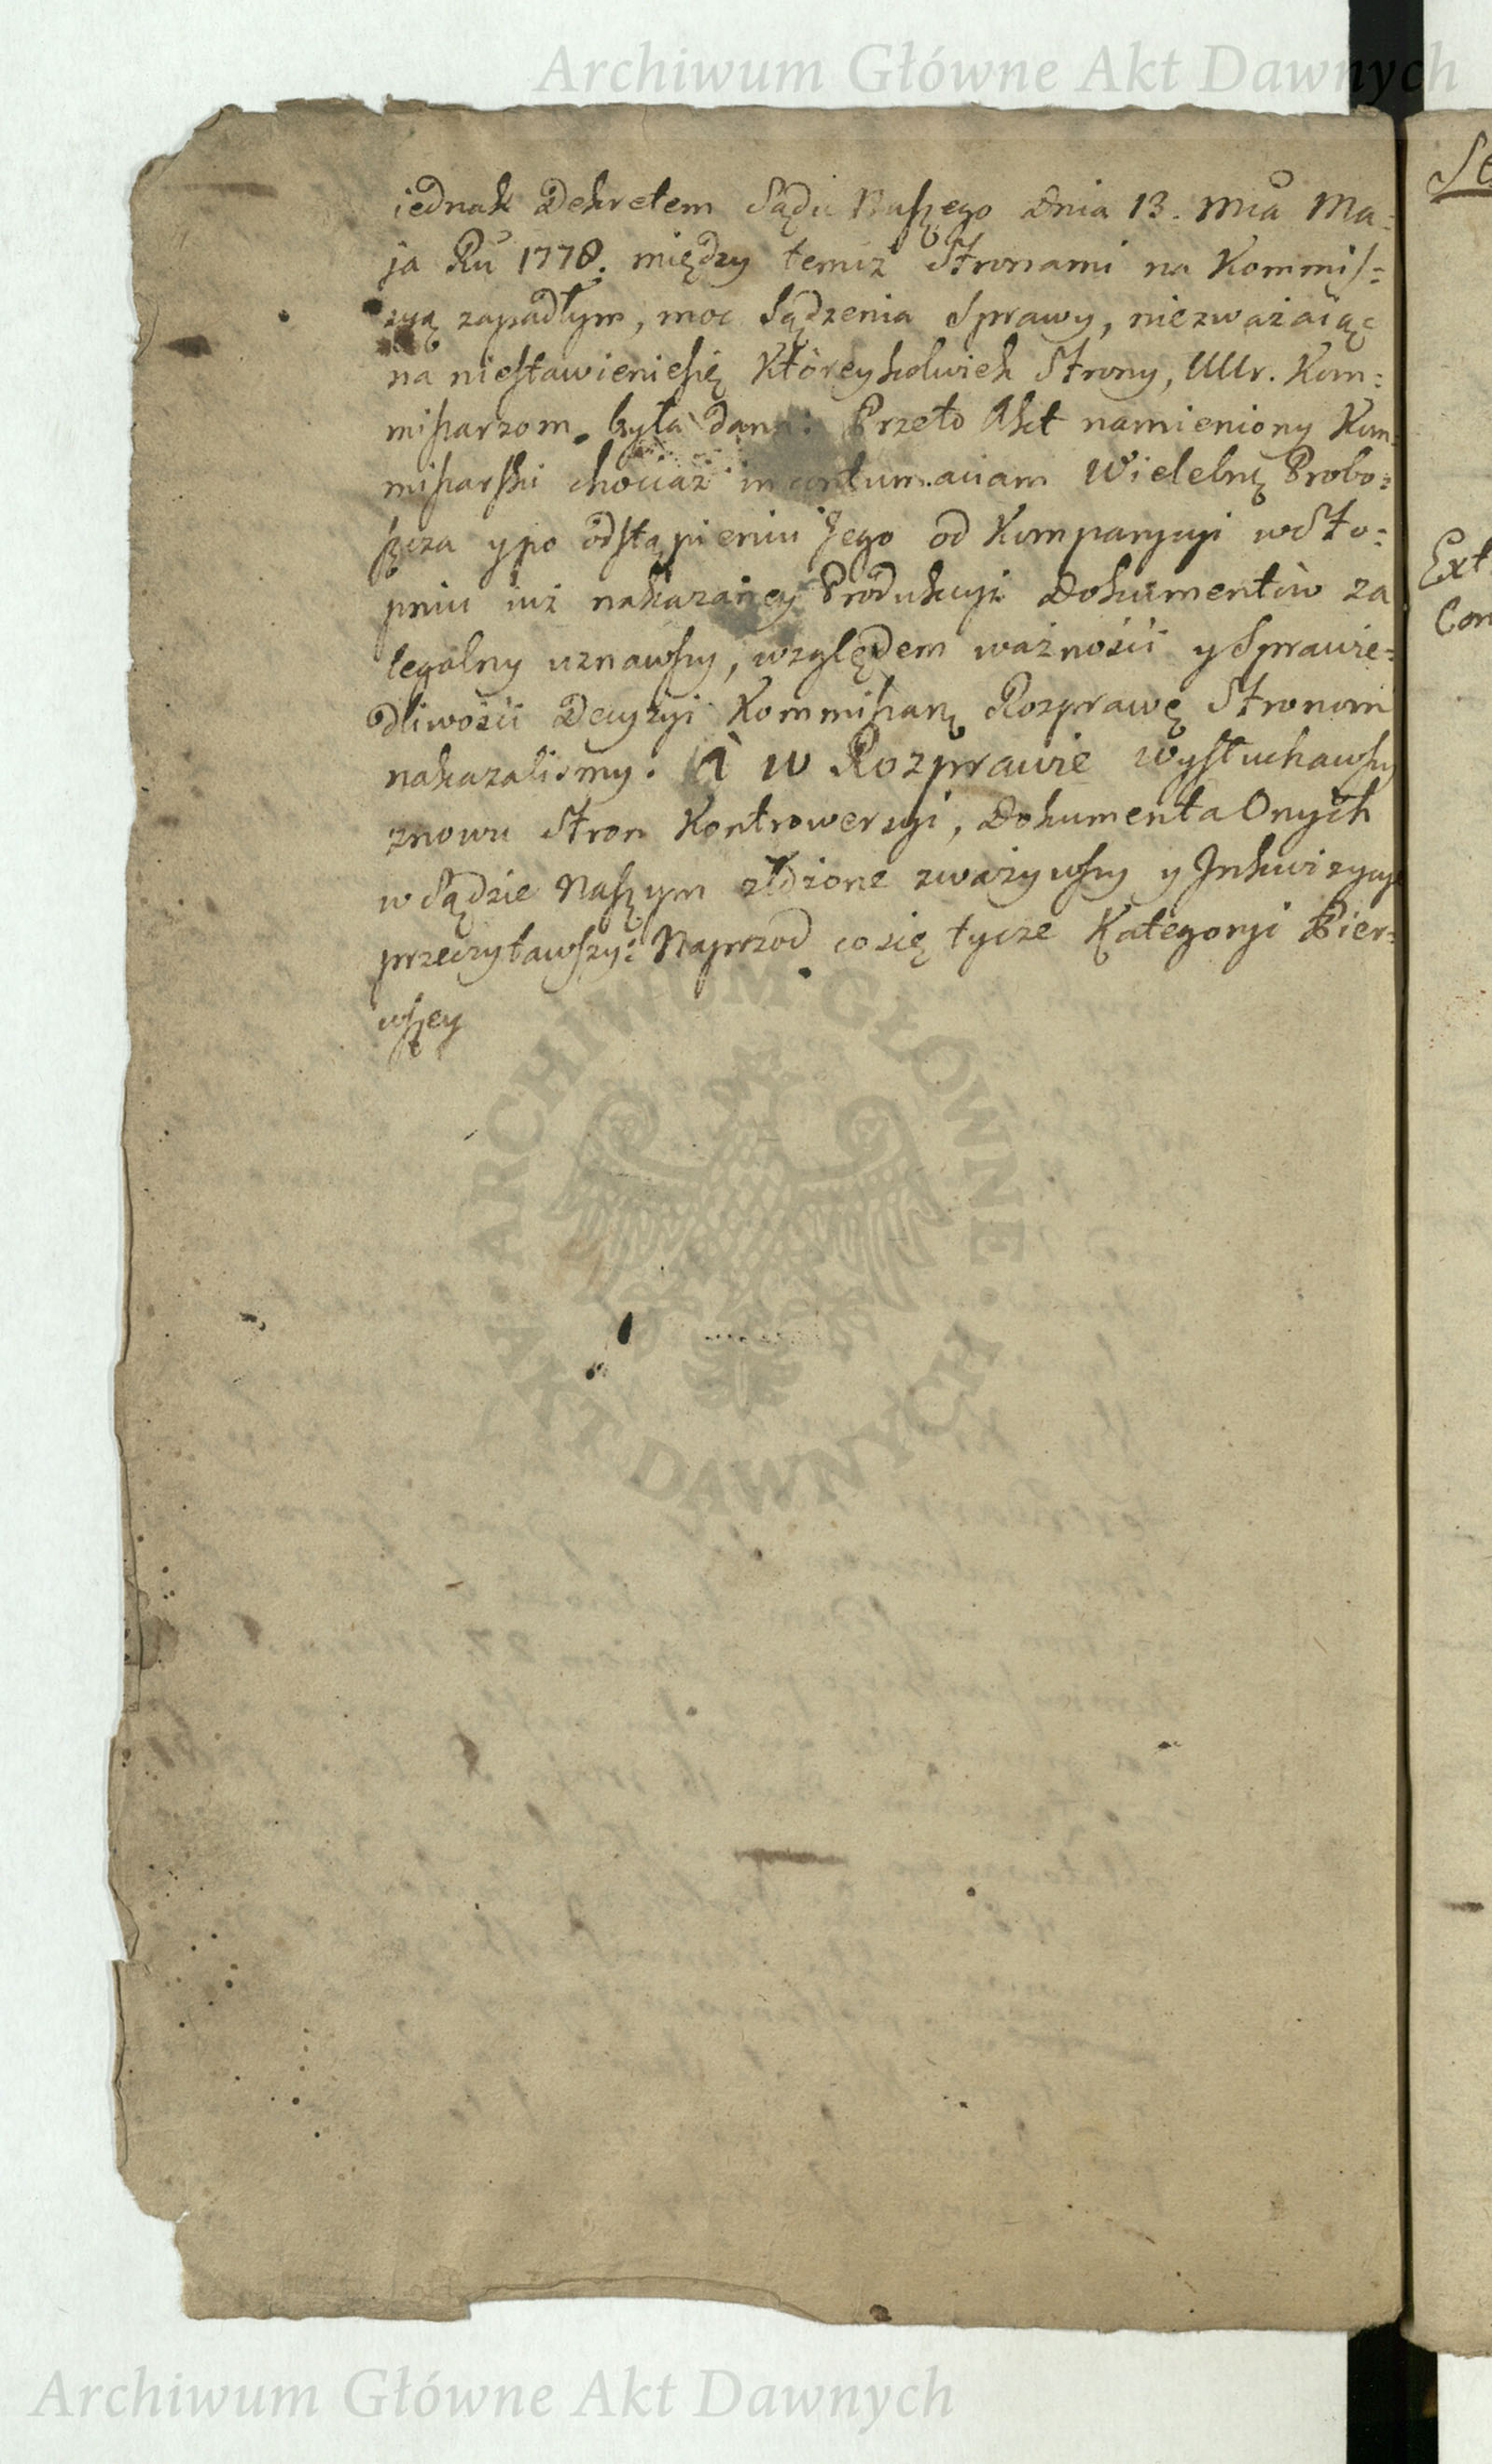 Archiwum Główne Akt Dawnych
iednak Dekretem Sądu Naszego Dnia 13. Mca Ma-
ja Ru 1778. między temiż Stronami na Kommis-
syą zapadłym, moc Sądzenia Sprawy, niezważaiąc
na niestawieniesię Któreykolwiek Strony, Ur. Kom-
missarzom była dana: Przeto Akt namieniony Kom-
missarski chociaż in contumaciam Wielebnę Probo-
szcza y po odstąpieniu Jego od Komparycyi w Sto-
pniu iuż nakazaney Produkcyi Dokumentów za
legalny uznawszy, względem ważności y Sprawie-
dliwości Decyzyi Kommissarz Rozprawę Stronom
nakazaliśmy. A w Rozprawie wysłuchawszy
znowu Stron Kontrowersyi, Dokumenta Onych
w Sądzie Naszym złożone zważywszy y Inkwizycye
przeczytawszy: Naprzod co się tycze Kategoryi Pier-
wszey
Ext
Con
ARCHIWUM GŁÓWNE
AKT DAWNYCH
Archiwum Główne Akt Dawnych